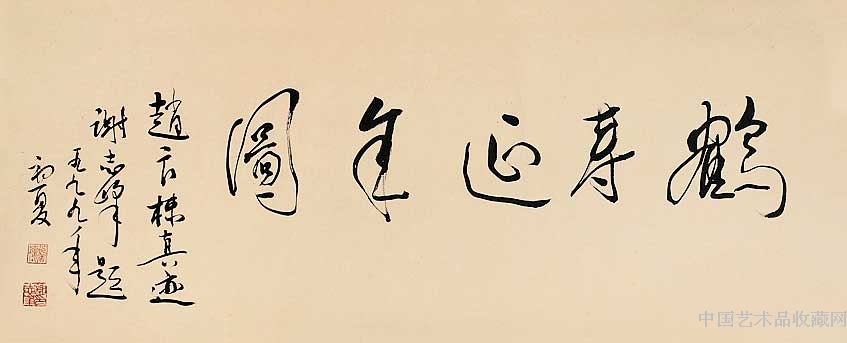 鶴寿延年圖
趙良棟真迹
謝志峰題
一九九九年
初夏
中国艺术品收藏网